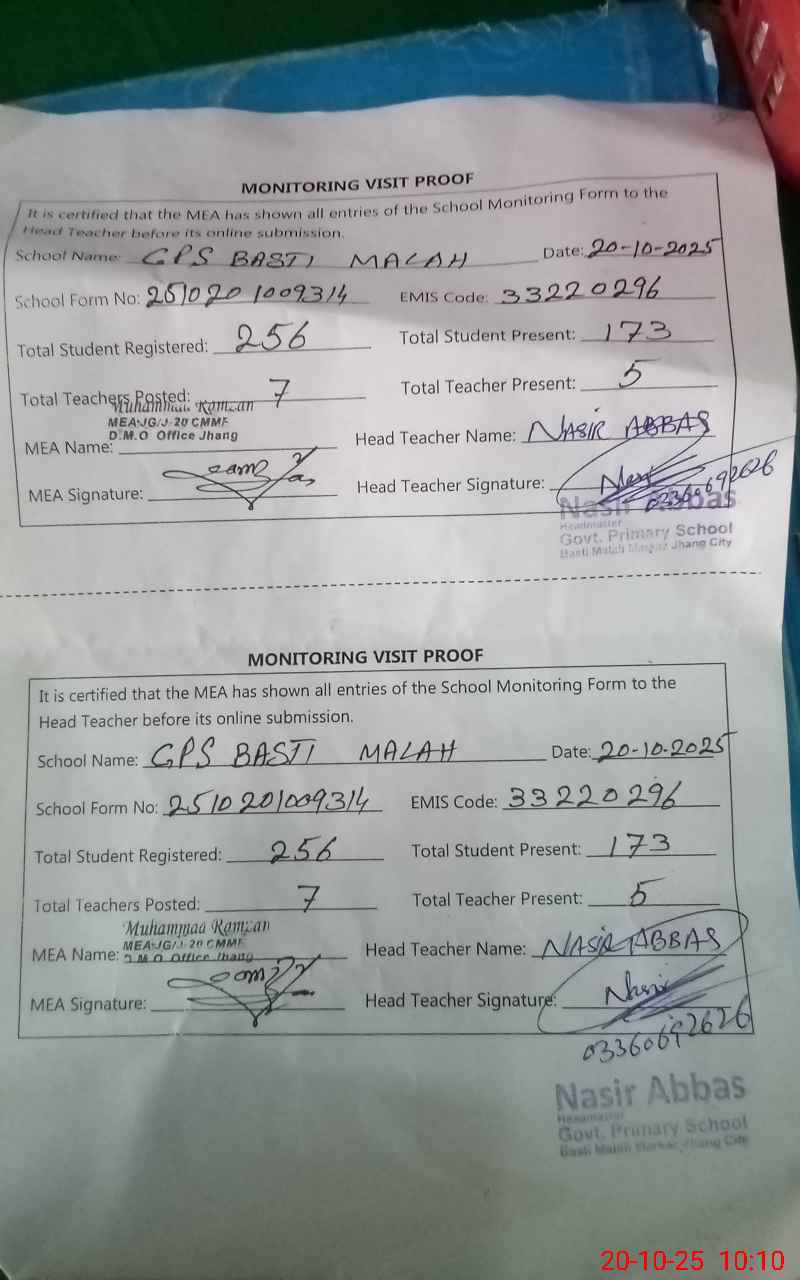 MONITORING VISIT PROOF
It is certified that the MEA has shown all entries of the School Monitoring Form to the
Head Teacher before its online submission.
School Name: GPS BASTI MALAH Date: 20-10-2025
School Form No: 2510201009314 EMIS Code: 33220296
Total Student Registered: 256 Total Student Present: 173
Total Teachers Posted: 7 Total Teacher Present: 5
Muhammad Ramzan
MEA-JG/J-20 CMMF
D.M.O Office Jhang
MEA Name: Head Teacher Name: NASIR ABBAS
MEA Signature: Head Teacher Signature: Nasir
03360692626
Nasir Abbas
Headmaster
Govt. Primary School
Basti Malah Markaz Jhang City
MONITORING VISIT PROOF
It is certified that the MEA has shown all entries of the School Monitoring Form to the
Head Teacher before its online submission.
School Name: GPS BASTI MALAH Date: 20-10-2025
School Form No: 2510201009314 EMIS Code: 33220296
Total Student Registered: 256 Total Student Present: 173
Total Teachers Posted: 7 Total Teacher Present: 5
Muhammad Ramzan
MEA-JG/J-20 CMMF
D.M.O Office Jhang
MEA Name: Head Teacher Name: NASIR ABBAS
MEA Signature: Head Teacher Signature: Nasir
03360692626
Nasir Abbas
Headmaster
Govt. Primary School
Basti Malah Markaz Jhang City
20-10-25 10:10